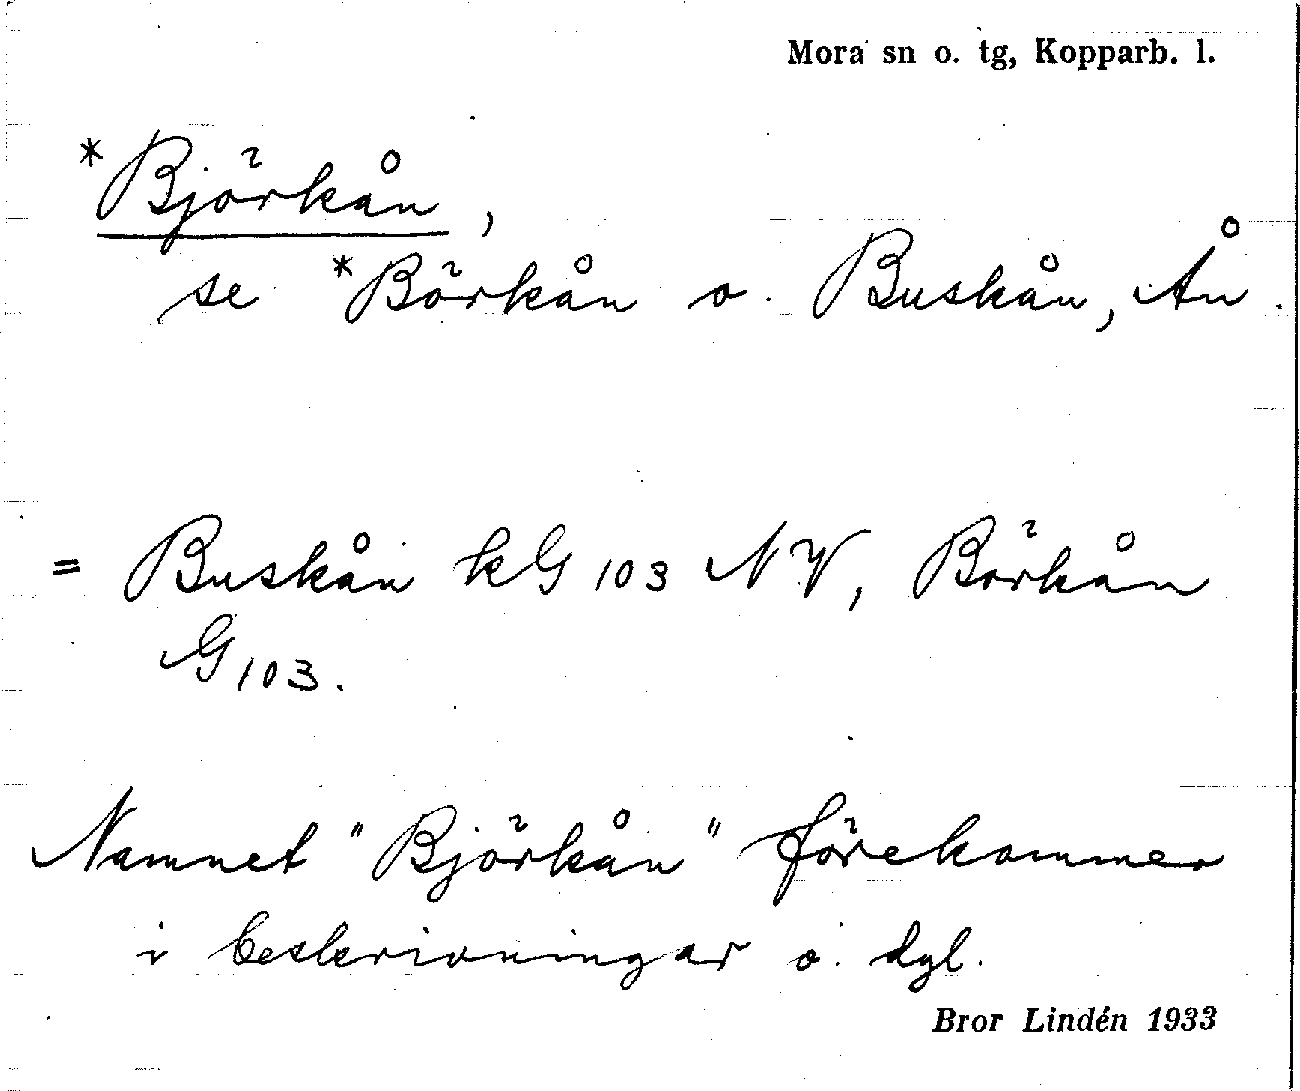 Mora sn o. tg, Kopparb. l.
*Björkån,
se *Börkån o. Buskån, Ån.
= Buskån kG 103 NV, Börkån
G 103.
Namnet "Björkån" förekommer
i beskrivningar o. dyl.
Bror Lindén 1933